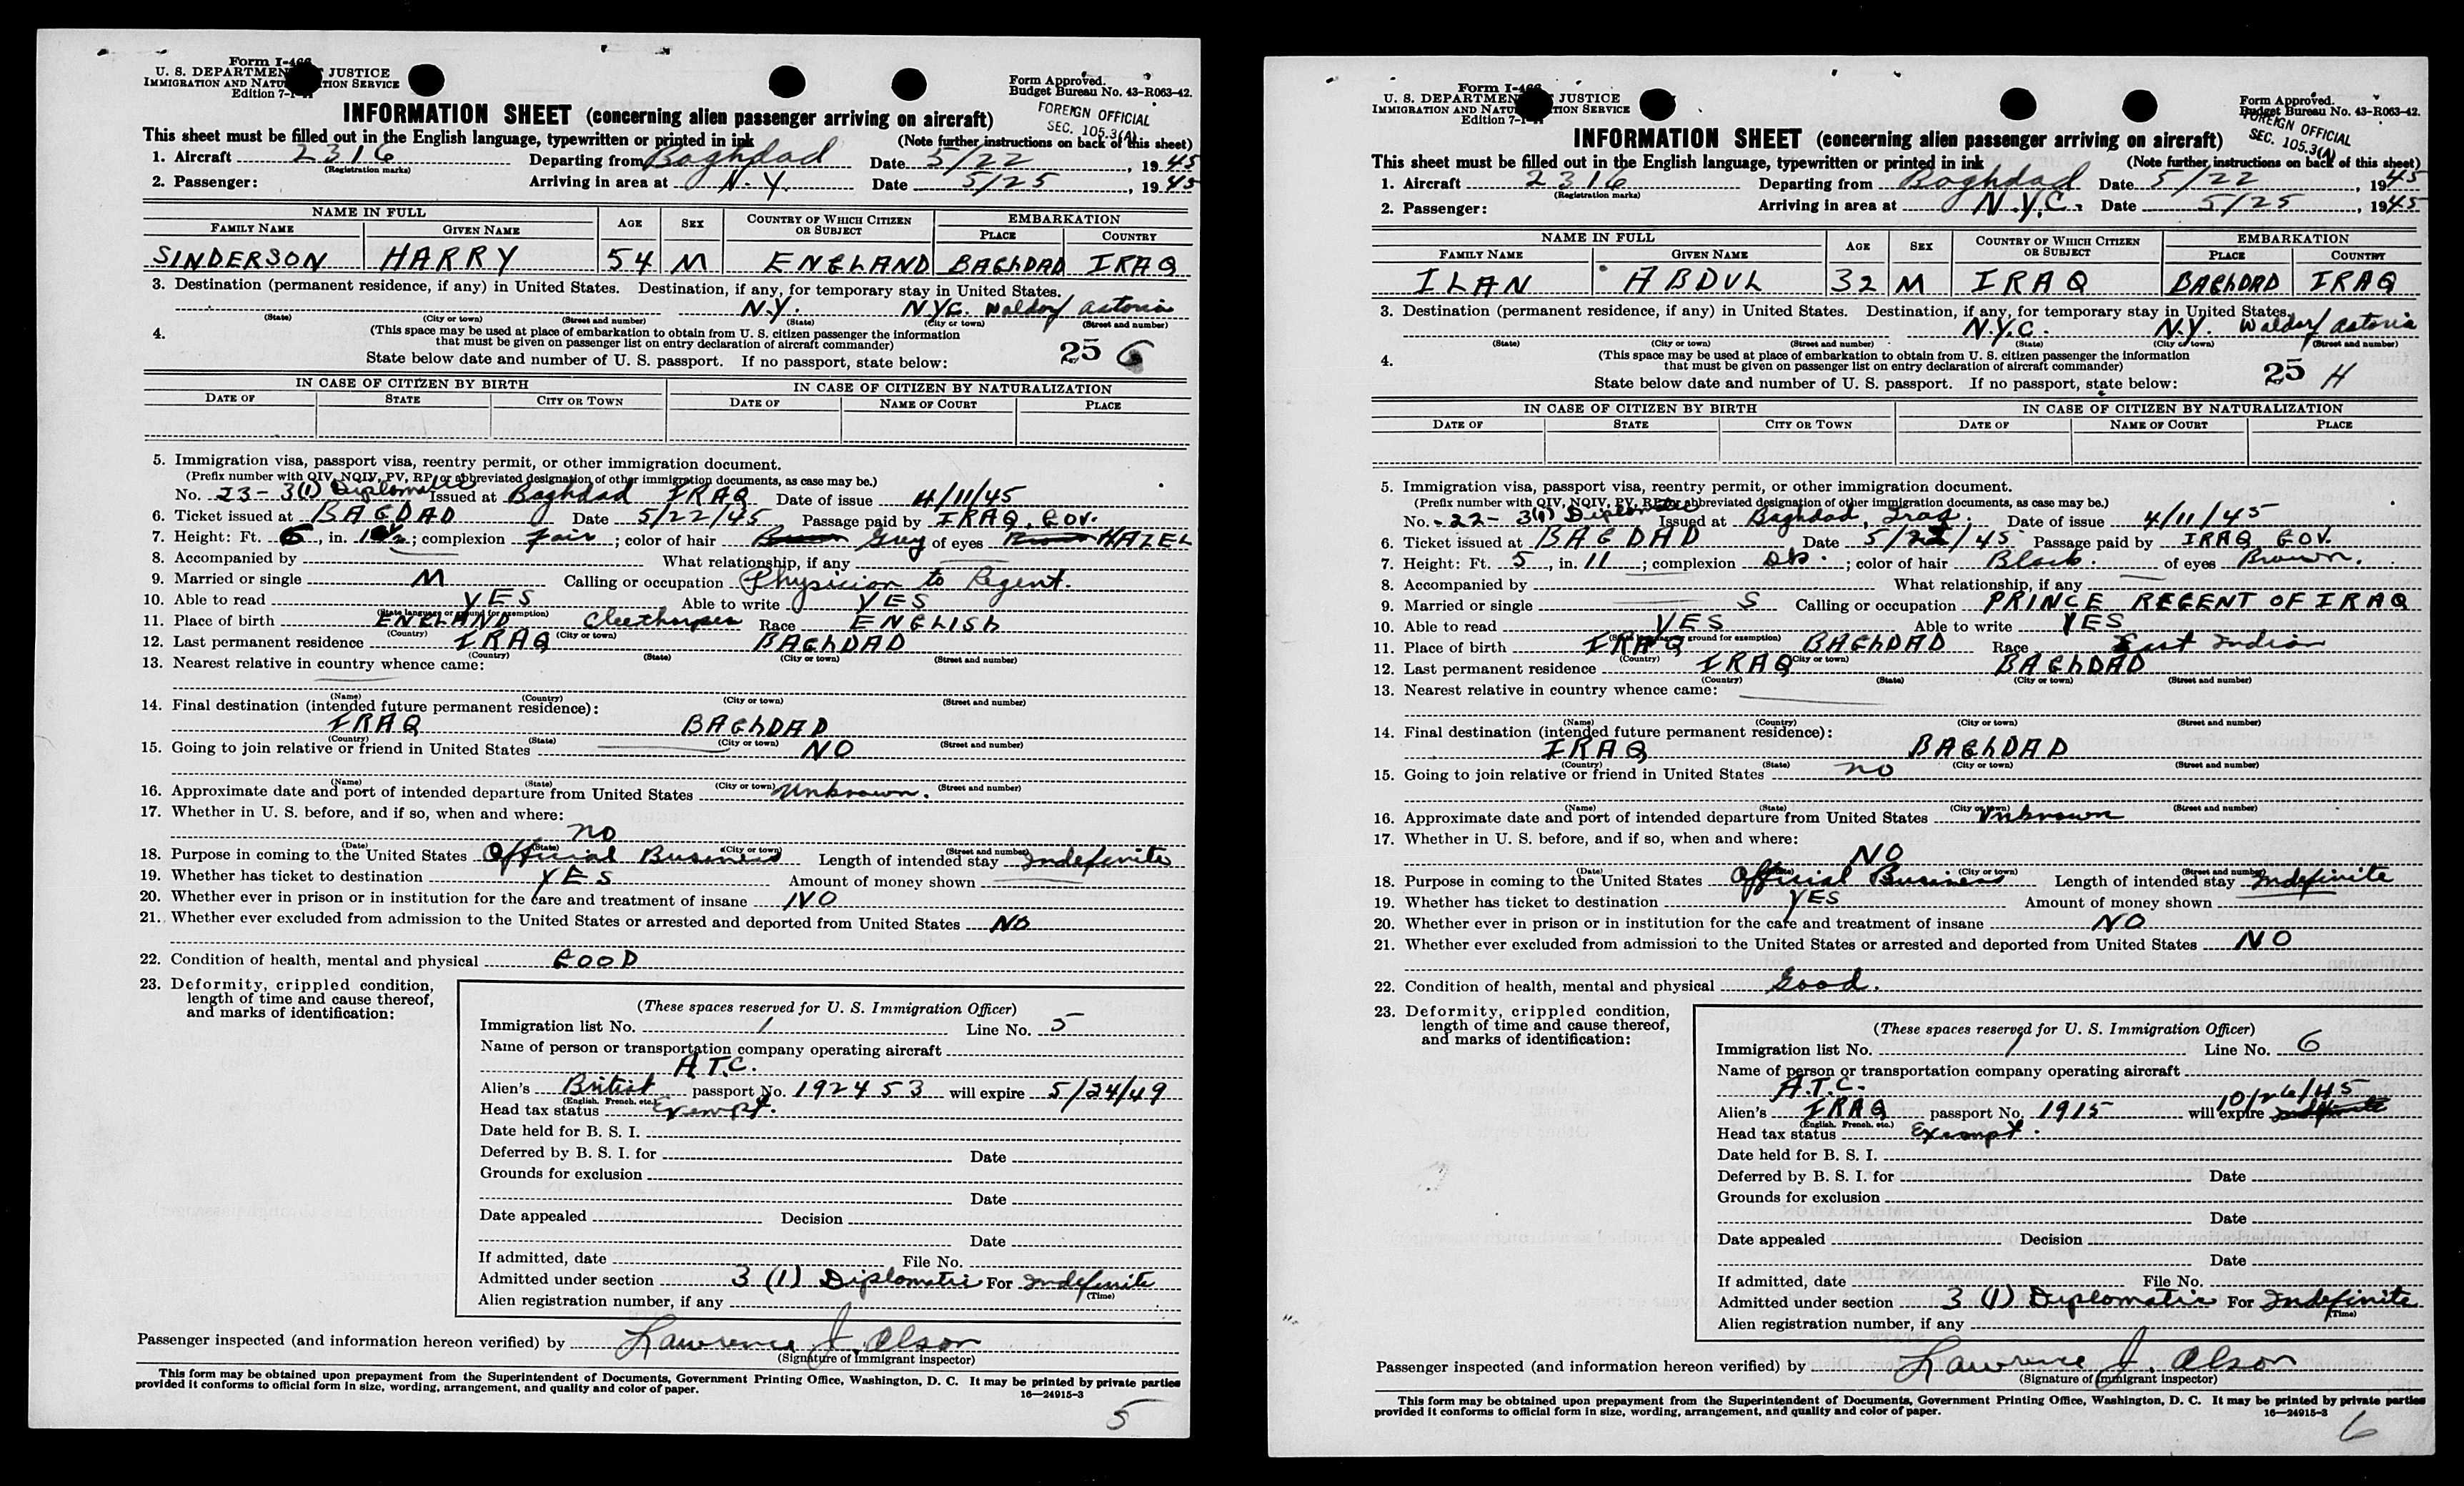 Form I-466
U. S. DEPARTMENT OF JUSTICE
IMMIGRATION AND NATURALIZATION SERVICE
Edition 7-1-41
Form Approved.
Budget Bureau No. 43-R063-42.
INFORMATION SHEET (concerning alien passenger arriving on aircraft)
FOREIGN OFFICIAL
SEC. 105.3(A)
This sheet must be filled out in the English language, typewritten or printed in ink (Note further instructions on back of this sheet)
1. Aircraft 2316 Departing from Baghdad Date 5/22, 1945
(Registration marks)
2. Passenger: Arriving in area at N.Y. Date 5/25, 1945
NAME IN FULL AGE SEX COUNTRY OF WHICH CITIZEN OR SUBJECT EMBARKATION
FAMILY NAME GIVEN NAME PLACE COUNTRY
SINDERSON HARRY 54 M ENGLAND BAGHDAD IRAQ
3. Destination (permanent residence, if any) in United States. Destination, if any, for temporary stay in United States.
N.Y. NYC. Waldorf Astoria
(State) (City or town) (Street and number) (State) (City or town) (Street and number)
4. (This space may be used at place of embarkation to obtain from U. S. citizen passenger the information
that must be given on passenger list on entry declaration of aircraft commander)
State below date and number of U. S. passport. If no passport, state below:
25 G
IN CASE OF CITIZEN BY BIRTH IN CASE OF CITIZEN BY NATURALIZATION
DATE OF STATE CITY OR TOWN DATE OF NAME OF COURT PLACE
5. Immigration visa, passport visa, reentry permit, or other immigration document.
(Prefix number with QIV, NQIV, PV, RP, or abbreviated designation of other immigration documents, as case may be.)
No. 23-3(1) Diplomatic Issued at Baghdad IRAQ Date of issue 4/11/45
6. Ticket issued at BAGDAD Date 5/22/45 Passage paid by IRAQ. GOV.
7. Height: Ft. 6, in. 1½; complexion fair; color of hair Grey of eyes HAZEL
8. Accompanied by What relationship, if any
9. Married or single M Calling or occupation Physician to Regent.
10. Able to read YES Able to write YES
(State language or ground for exemption)
11. Place of birth ENGLAND Cleethorpes Race ENGLISH
(Country) (City or town)
12. Last permanent residence IRAQ BAGHDAD
(Country) (State) (City or town) (Street and number)
13. Nearest relative in country whence came:
(Name) (Country) (City or town) (Street and number)
14. Final destination (intended future permanent residence):
IRAQ BAGHDAD
(Country) (State) (City or town) (Street and number)
15. Going to join relative or friend in United States NO
(Name) (State) (City or town) (Street and number)
16. Approximate date and port of intended departure from United States Unknown.
17. Whether in U. S. before, and if so, when and where:
no
(Date) (State) (City or town) (Street and number)
18. Purpose in coming to the United States Official Business Length of intended stay Indefinite
19. Whether has ticket to destination YES Amount of money shown
20. Whether ever in prison or in institution for the care and treatment of insane NO
21. Whether ever excluded from admission to the United States or arrested and deported from United States NO
22. Condition of health, mental and physical GOOD
23. Deformity, crippled condition,
length of time and cause thereof,
and marks of identification:
(These spaces reserved for U. S. Immigration Officer)
Immigration list No. 1 Line No. 5
Name of person or transportation company operating aircraft
A.T.C.
Alien's British passport No. 192453 will expire 5/24/49
(English, French, etc.)
Head tax status Exempt.
Date held for B. S. I.
Deferred by B. S. I. for Date
Grounds for exclusion
Date
Date appealed Decision
Date
If admitted, date File No.
Admitted under section 3 (1) Diplomatic For Indefinite
(Time)
Alien registration number, if any
Passenger inspected (and information hereon verified) by Lawrence J. Olson
(Signature of immigrant inspector)
This form may be obtained upon prepayment from the Superintendent of Documents, Government Printing Office, Washington, D. C. It may be printed by private parties
provided it conforms to official form in size, wording, arrangement, and quality and color of paper. 16—24915-3
5
Form I-466
U. S. DEPARTMENT OF JUSTICE
IMMIGRATION AND NATURALIZATION SERVICE
Edition 7-1-41
Form Approved.
Budget Bureau No. 43-R063-42.
FOREIGN OFFICIAL
SEC. 105.3(A)
INFORMATION SHEET (concerning alien passenger arriving on aircraft)
This sheet must be filled out in the English language, typewritten or printed in ink (Note further instructions on back of this sheet)
1. Aircraft 2316 Departing from Baghdad Date 5/22, 1945
(Registration marks)
2. Passenger: Arriving in area at N.Y.C. Date 5/25, 1945
NAME IN FULL AGE SEX COUNTRY OF WHICH CITIZEN OR SUBJECT EMBARKATION
FAMILY NAME GIVEN NAME PLACE COUNTRY
ILAN ABDUL 32 M IRAQ BAGHDAD IRAQ
3. Destination (permanent residence, if any) in United States. Destination, if any, for temporary stay in United States.
N.Y.C. N.Y. Waldorf Astoria
(State) (City or town) (Street and number) (State) (City or town) (Street and number)
4. (This space may be used at place of embarkation to obtain from U. S. citizen passenger the information
that must be given on passenger list on entry declaration of aircraft commander)
State below date and number of U. S. passport. If no passport, state below:
25 H
IN CASE OF CITIZEN BY BIRTH IN CASE OF CITIZEN BY NATURALIZATION
DATE OF STATE CITY OR TOWN DATE OF NAME OF COURT PLACE
5. Immigration visa, passport visa, reentry permit, or other immigration document.
(Prefix number with QIV, NQIV, PV, RP, or abbreviated designation of other immigration documents, as case may be.)
No. 22-3(1) Diplomatic Issued at Baghdad, Iraq. Date of issue 4/11/45
6. Ticket issued at BAGDAD Date 5/22/45 Passage paid by IRAQ GOV.
7. Height: Ft. 5, in. 11; complexion Dk.; color of hair Black. of eyes Brown.
8. Accompanied by What relationship, if any
9. Married or single S Calling or occupation PRINCE REGENT OF IRAQ
10. Able to read YES Able to write YES
(State language or ground for exemption)
11. Place of birth IRAQ BAGHDAD Race East Indian
(Country) (City or town)
12. Last permanent residence IRAQ BAGHDAD
(Country) (State) (City or town) (Street and number)
13. Nearest relative in country whence came:
(Name) (Country) (City or town) (Street and number)
14. Final destination (intended future permanent residence):
IRAQ BAGHDAD
(Country) (State) (City or town) (Street and number)
15. Going to join relative or friend in United States no
(Name) (State) (City or town) (Street and number)
16. Approximate date and port of intended departure from United States Unknown
17. Whether in U. S. before, and if so, when and where:
NO
(Date) (State) (City or town) (Street and number)
18. Purpose in coming to the United States Official Business Length of intended stay Indefinite
19. Whether has ticket to destination YES Amount of money shown
20. Whether ever in prison or in institution for the care and treatment of insane NO
21. Whether ever excluded from admission to the United States or arrested and deported from United States NO
22. Condition of health, mental and physical Good.
23. Deformity, crippled condition,
length of time and cause thereof,
and marks of identification:
(These spaces reserved for U. S. Immigration Officer)
Immigration list No. 1 Line No. 6
Name of person or transportation company operating aircraft
A.T.C.
10/26/45
Alien's IRAQ passport No. 1915 will expire Indefinite
(English, French, etc.)
Head tax status Exempt.
Date held for B. S. I.
Deferred by B. S. I. for Date
Grounds for exclusion
Date
Date appealed Decision
Date
If admitted, date File No.
Admitted under section 3 (1) Diplomatic For Indefinite
(Time)
Alien registration number, if any
Passenger inspected (and information hereon verified) by Lawrence J. Olson
(Signature of immigrant inspector)
This form may be obtained upon prepayment from the Superintendent of Documents, Government Printing Office, Washington, D. C. It may be printed by private parties
provided it conforms to official form in size, wording, arrangement, and quality and color of paper. 16—24915-3
6